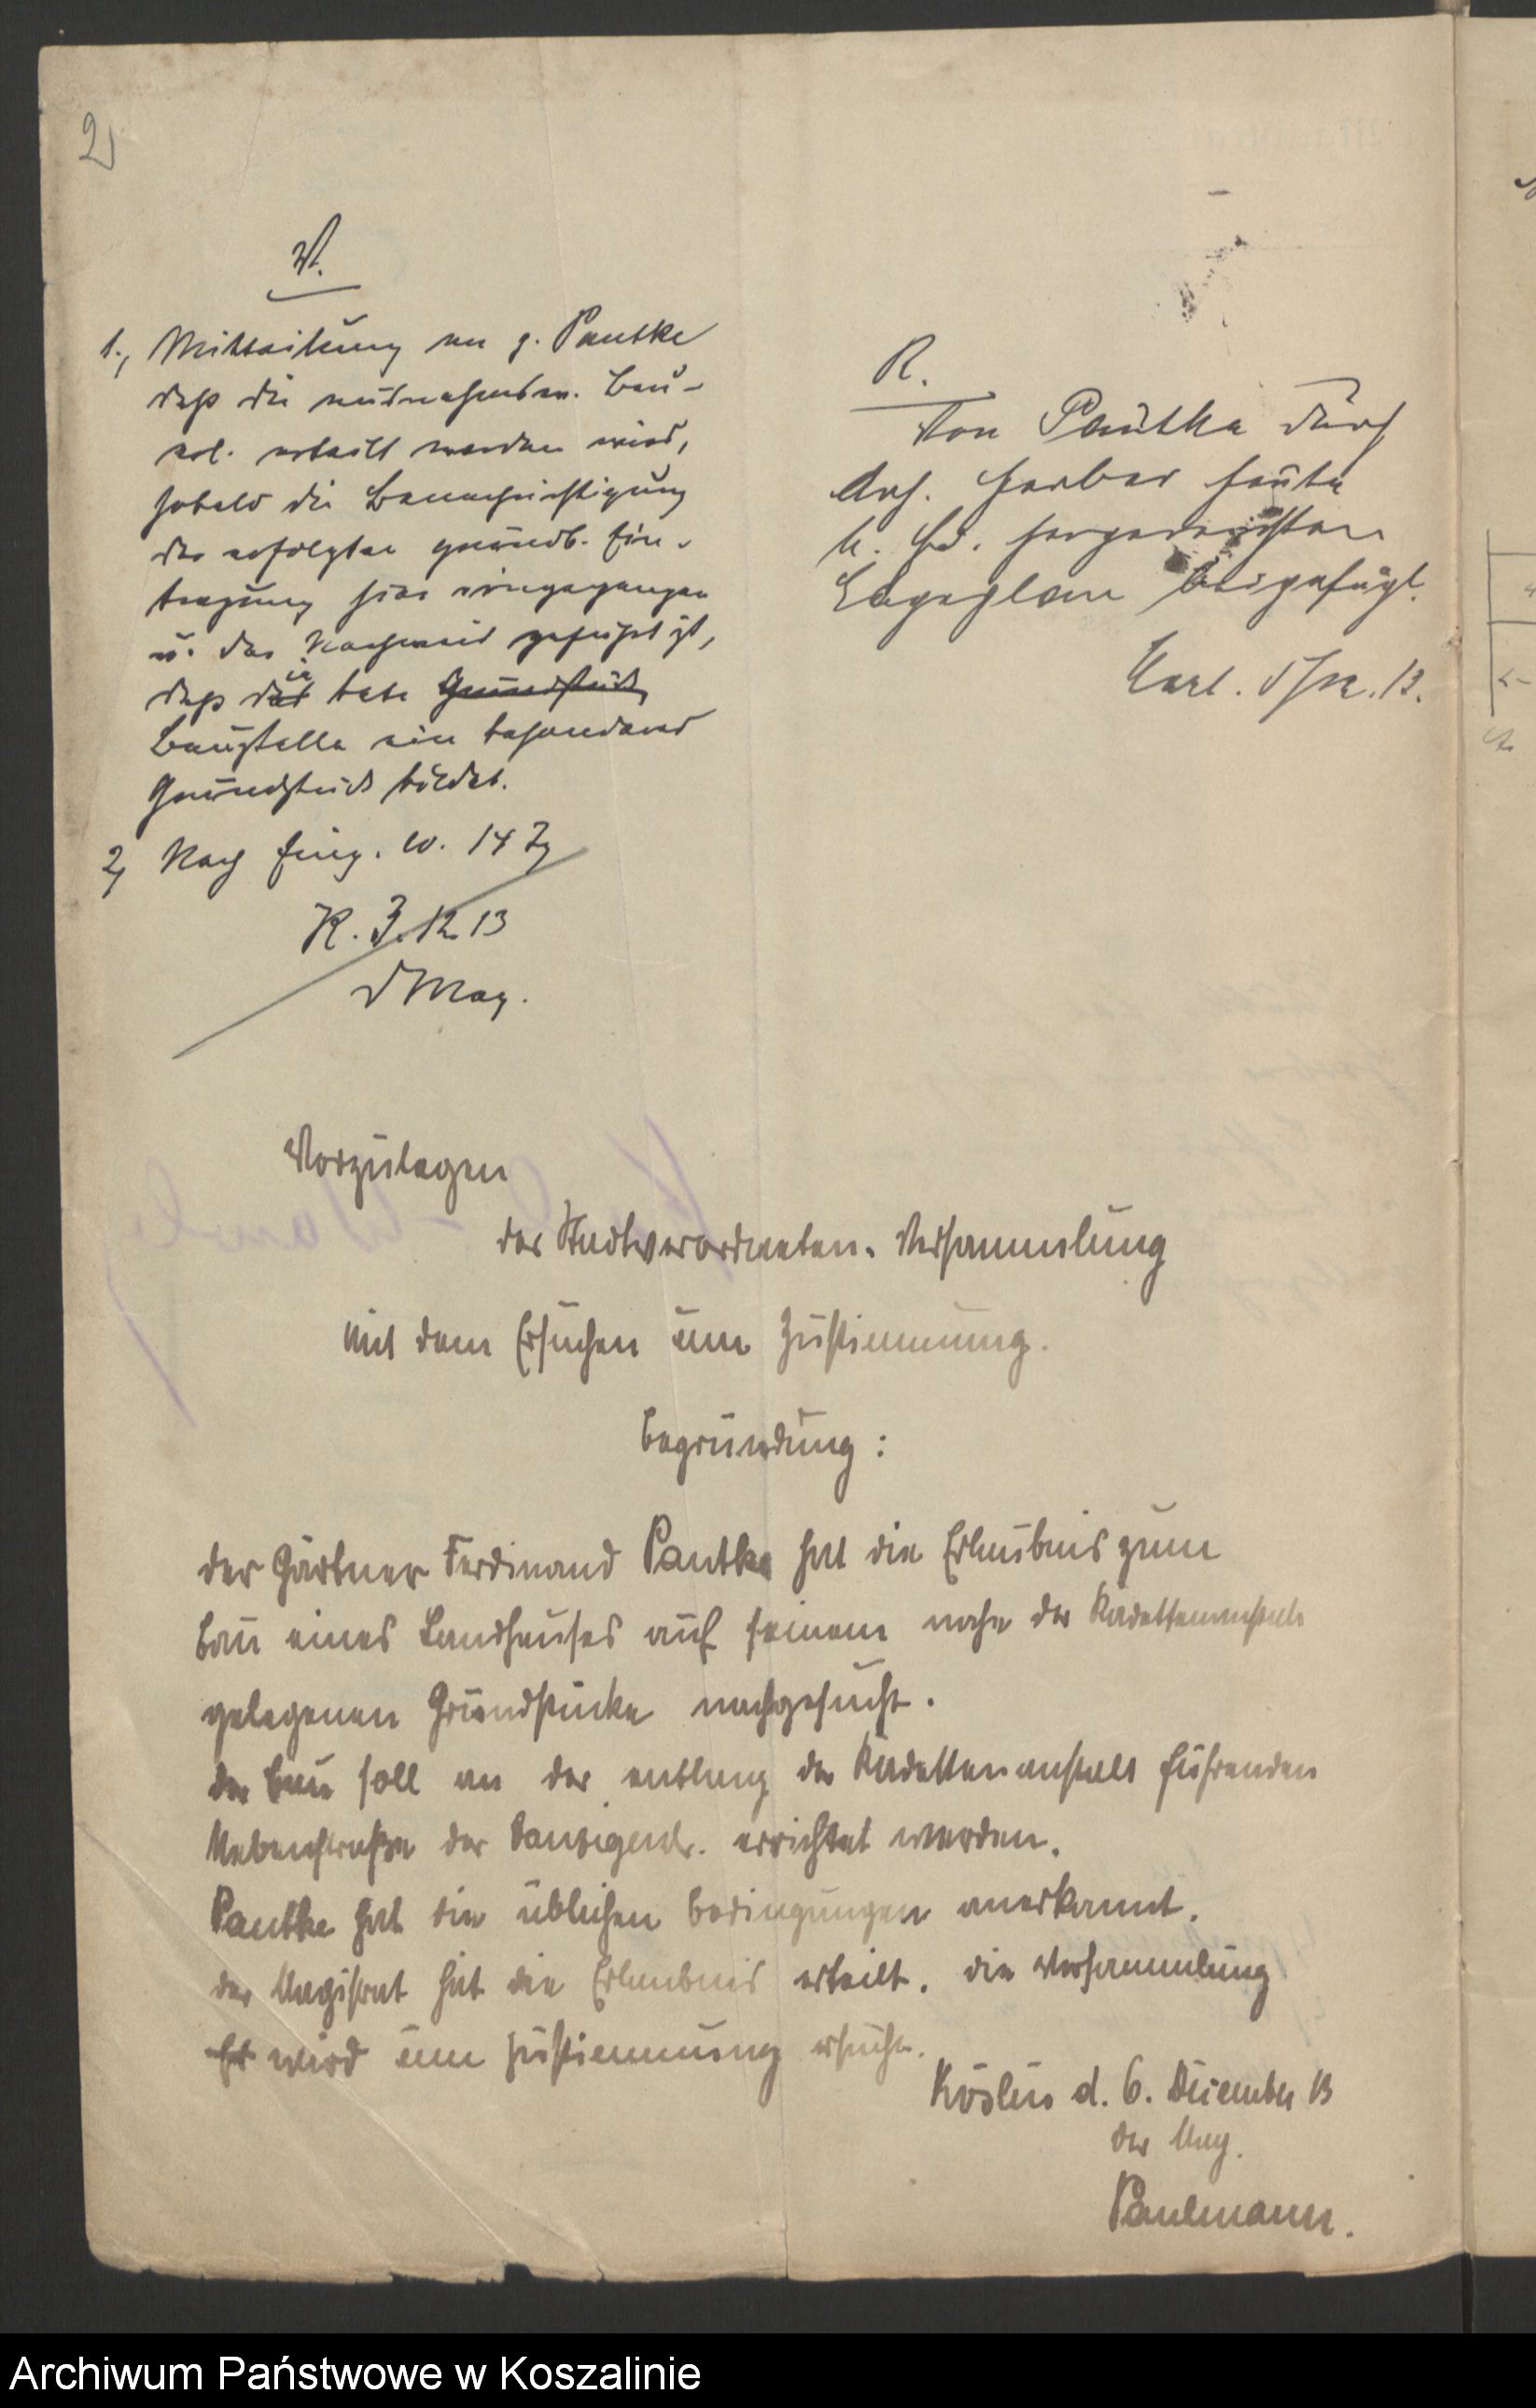 2)
V.
1., Mitteilung an g. Pantke
daß die ausnahmsw. Bau-
erl. erteilt werden wird,
sobald die Benachrichtigung
der erfolgten grundb. Ein-
tragung hier eingegangen
u. der Nachweis geführt ist,
daß die betr. Grundstück
Baustelle ein besonderes
Grundstück bildet.
2, Nach Eing. w. 14 Tg
K. 3.12.13
d Mag.
R.
Von Pautke durch
Arch. heute
Lageplan beigefügt.
13.
Vorzulegen
der Stadtverordneten-Versammlung
mit dem Ersuchen um Zustimmung.
Begründung:
Der Gärtner Ferdinand Pantke hat die Erlaubnis zum
Bau eines Landhauses auf seinem nahe der Kadettenanstalt
gelegenen Grundstücke nachgesucht.
Der Bau soll an der entlang der Kadettenanstalt führenden
Nebenstraße der Danzigerstr. errichtet werden.
Pantke hat die üblichen Bedingungen anerkannt.
Der Magistrat hat die Erlaubnis erteilt. Die Versammlung
Es wird um Zustimmung ersucht.
Köslin d. 6. Dezember 13
Der Mag.
Paulmann.
Archiwum Państwowe w Koszalinie